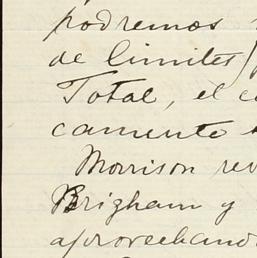 podremos
de limites
Total, el
camente
Morrison
Brigham y
aprovechando